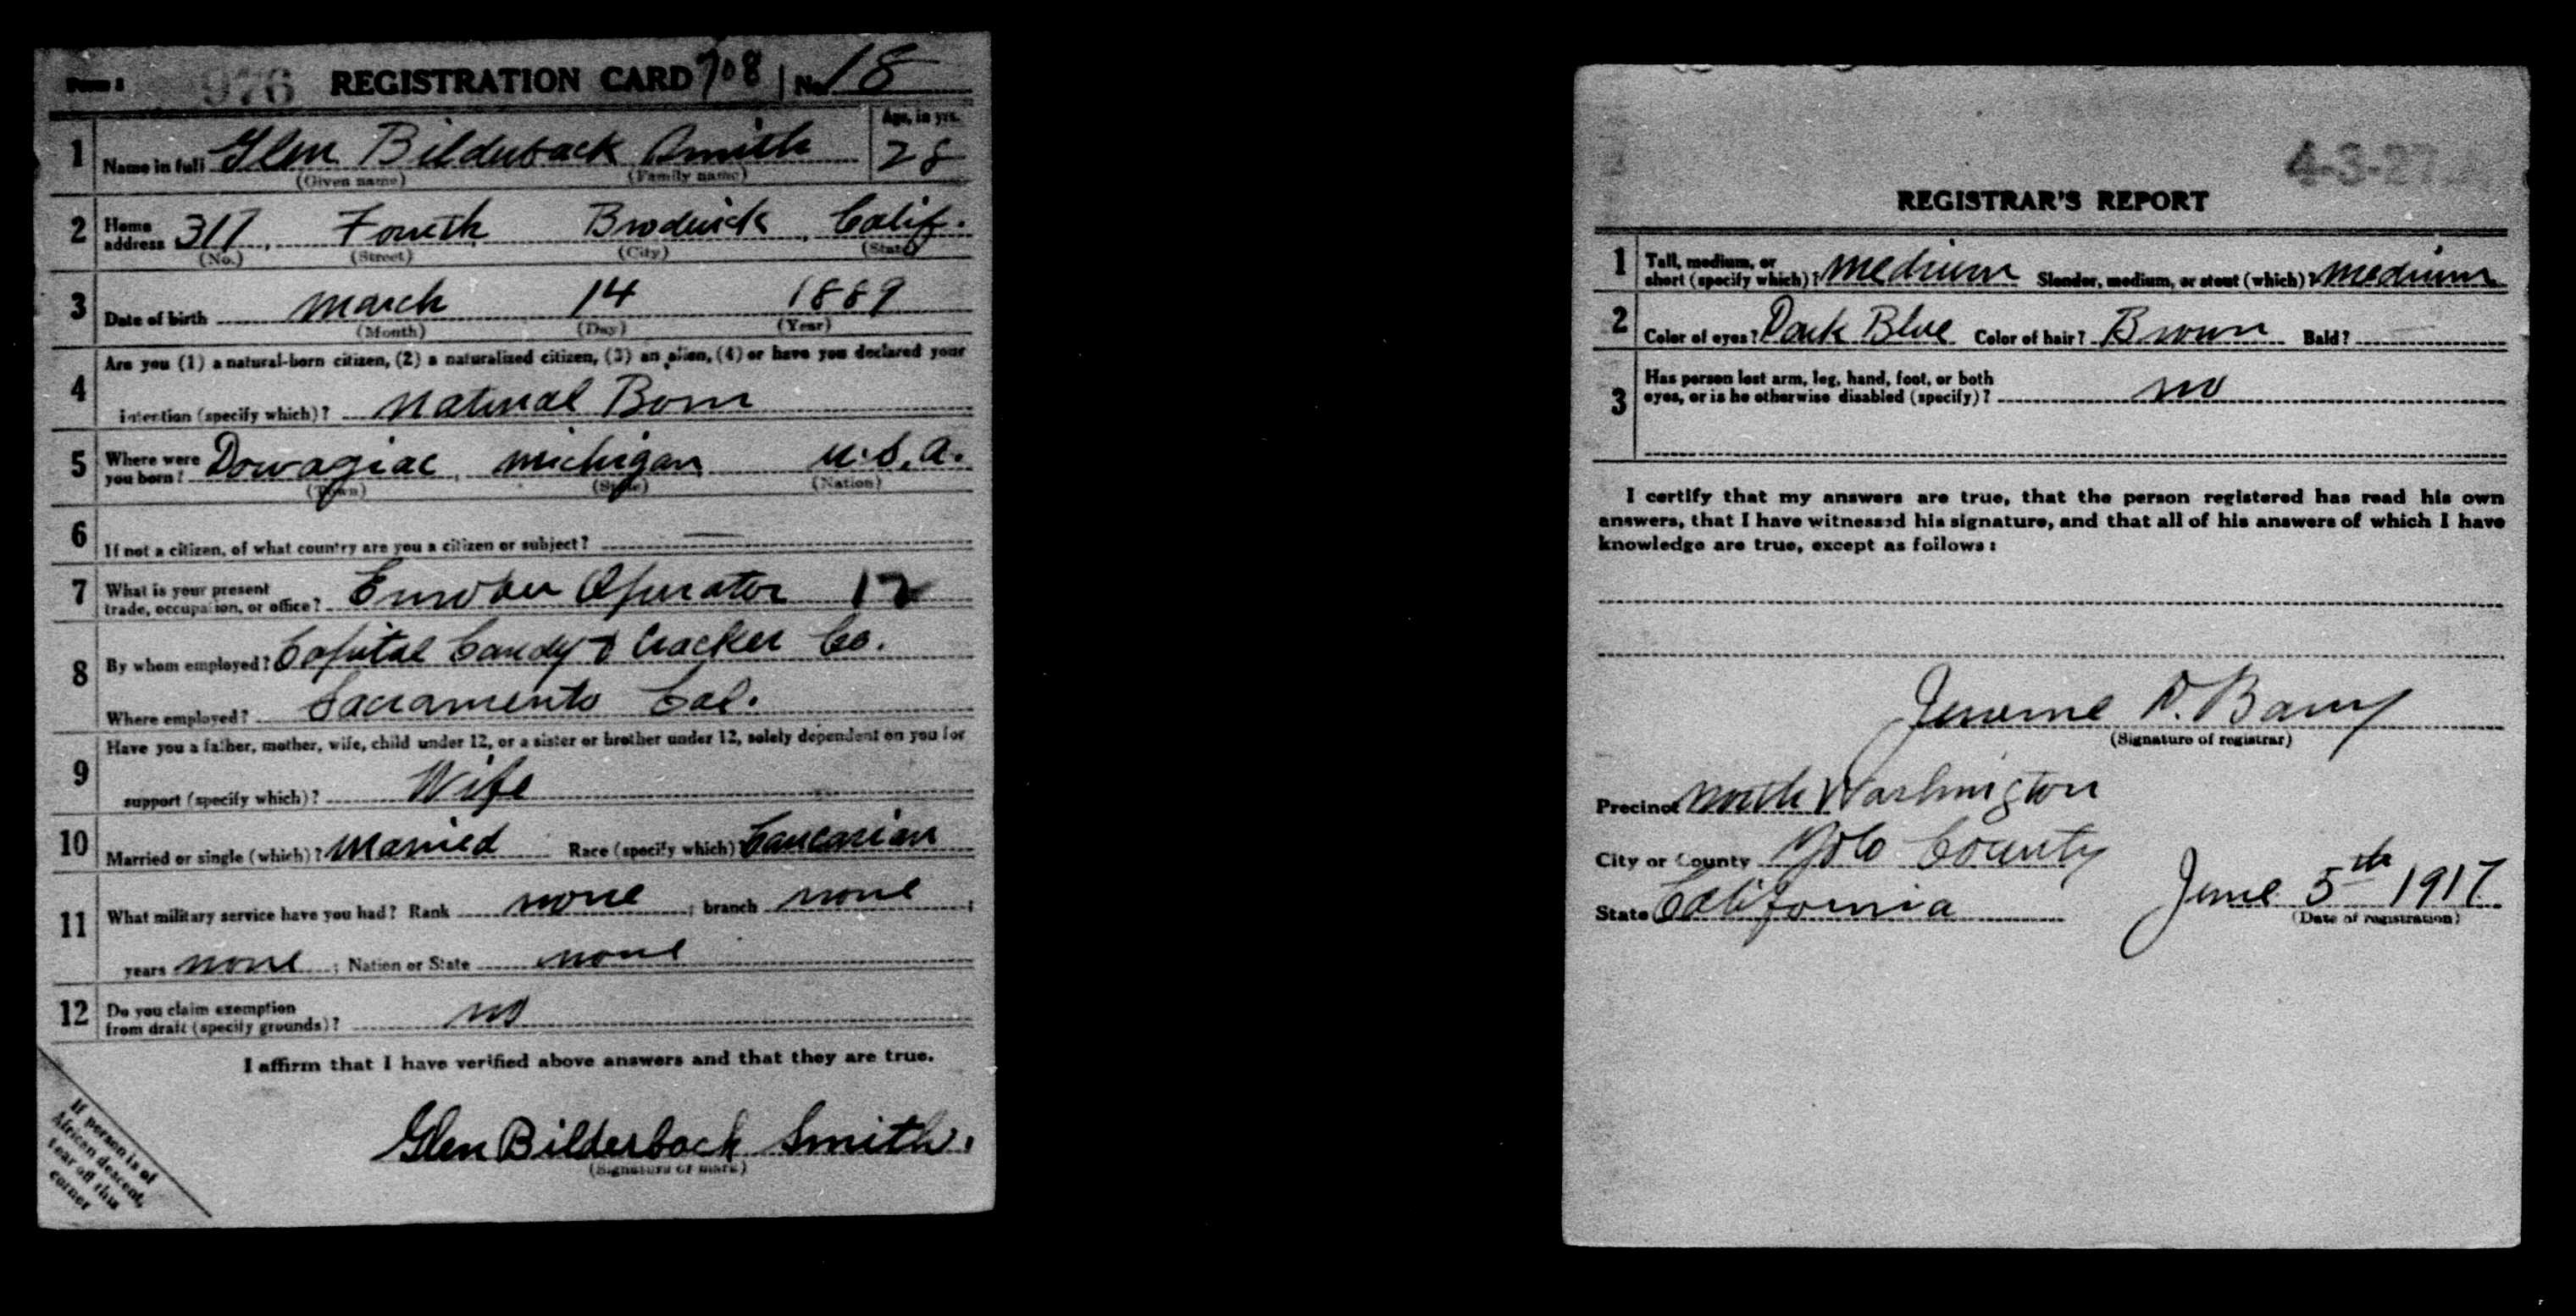 Form 1 976 REGISTRATION CARD 708 No. 18
1 Name in full Glen Bilderback Smith Age, in yrs. 28
(Given name) (Family name)
2 Home address 317, Fourth Brodwick, Calif.
(No.) (Street) (City) (State)
3 Date of birth March 14 1889
(Month) (Day) (Year)
Are you (1) a natural-born citizen, (2) a naturalized citizen, (3) an alien, (4) or have you declared your
4 intention (specify which)? Natural Born
5 Where were you born? Dowagiac, Michigan U.S.A.
(Town) (State) (Nation)
6 If not a citizen, of what country are you a citizen or subject? —
7 What is your present trade, occupation, or office? Enrober Operator 12
8 By whom employed? Capital Candy & Cracker Co.
Where employed? Sacramento Cal.
Have you a father, mother, wife, child under 12, or a sister or brother under 12, solely dependent on you for
9 support (specify which)? Wife
10 Married or single (which)? Married Race (specify which)? Caucasian
11 What military service have you had? Rank none ; branch none ;
years none ; Nation or State none
12 Do you claim exemption from draft (specify grounds)? no
I affirm that I have verified above answers and that they are true.
Glen Bilderback Smith.
(Signature or mark)
If person is of
African descent,
tear off this
corner
4-3-27
REGISTRAR'S REPORT
1 Tall, medium, or short (specify which)? Medium Slender, medium, or stout (which)? Medium
2 Color of eyes? Dark Blue Color of hair? Brown Bald?
3 Has person lost arm, leg, hand, foot, or both
eyes, or is he otherwise disabled (specify)? no
I certify that my answers are true, that the person registered has read his own
answers, that I have witnessed his signature, and that all of his answers of which I have
knowledge are true, except as follows:
Jerome D. Barry
(Signature of registrar)
Precinct North Washington
City or County Yolo County
State California June 5th 1917
(Date of registration)